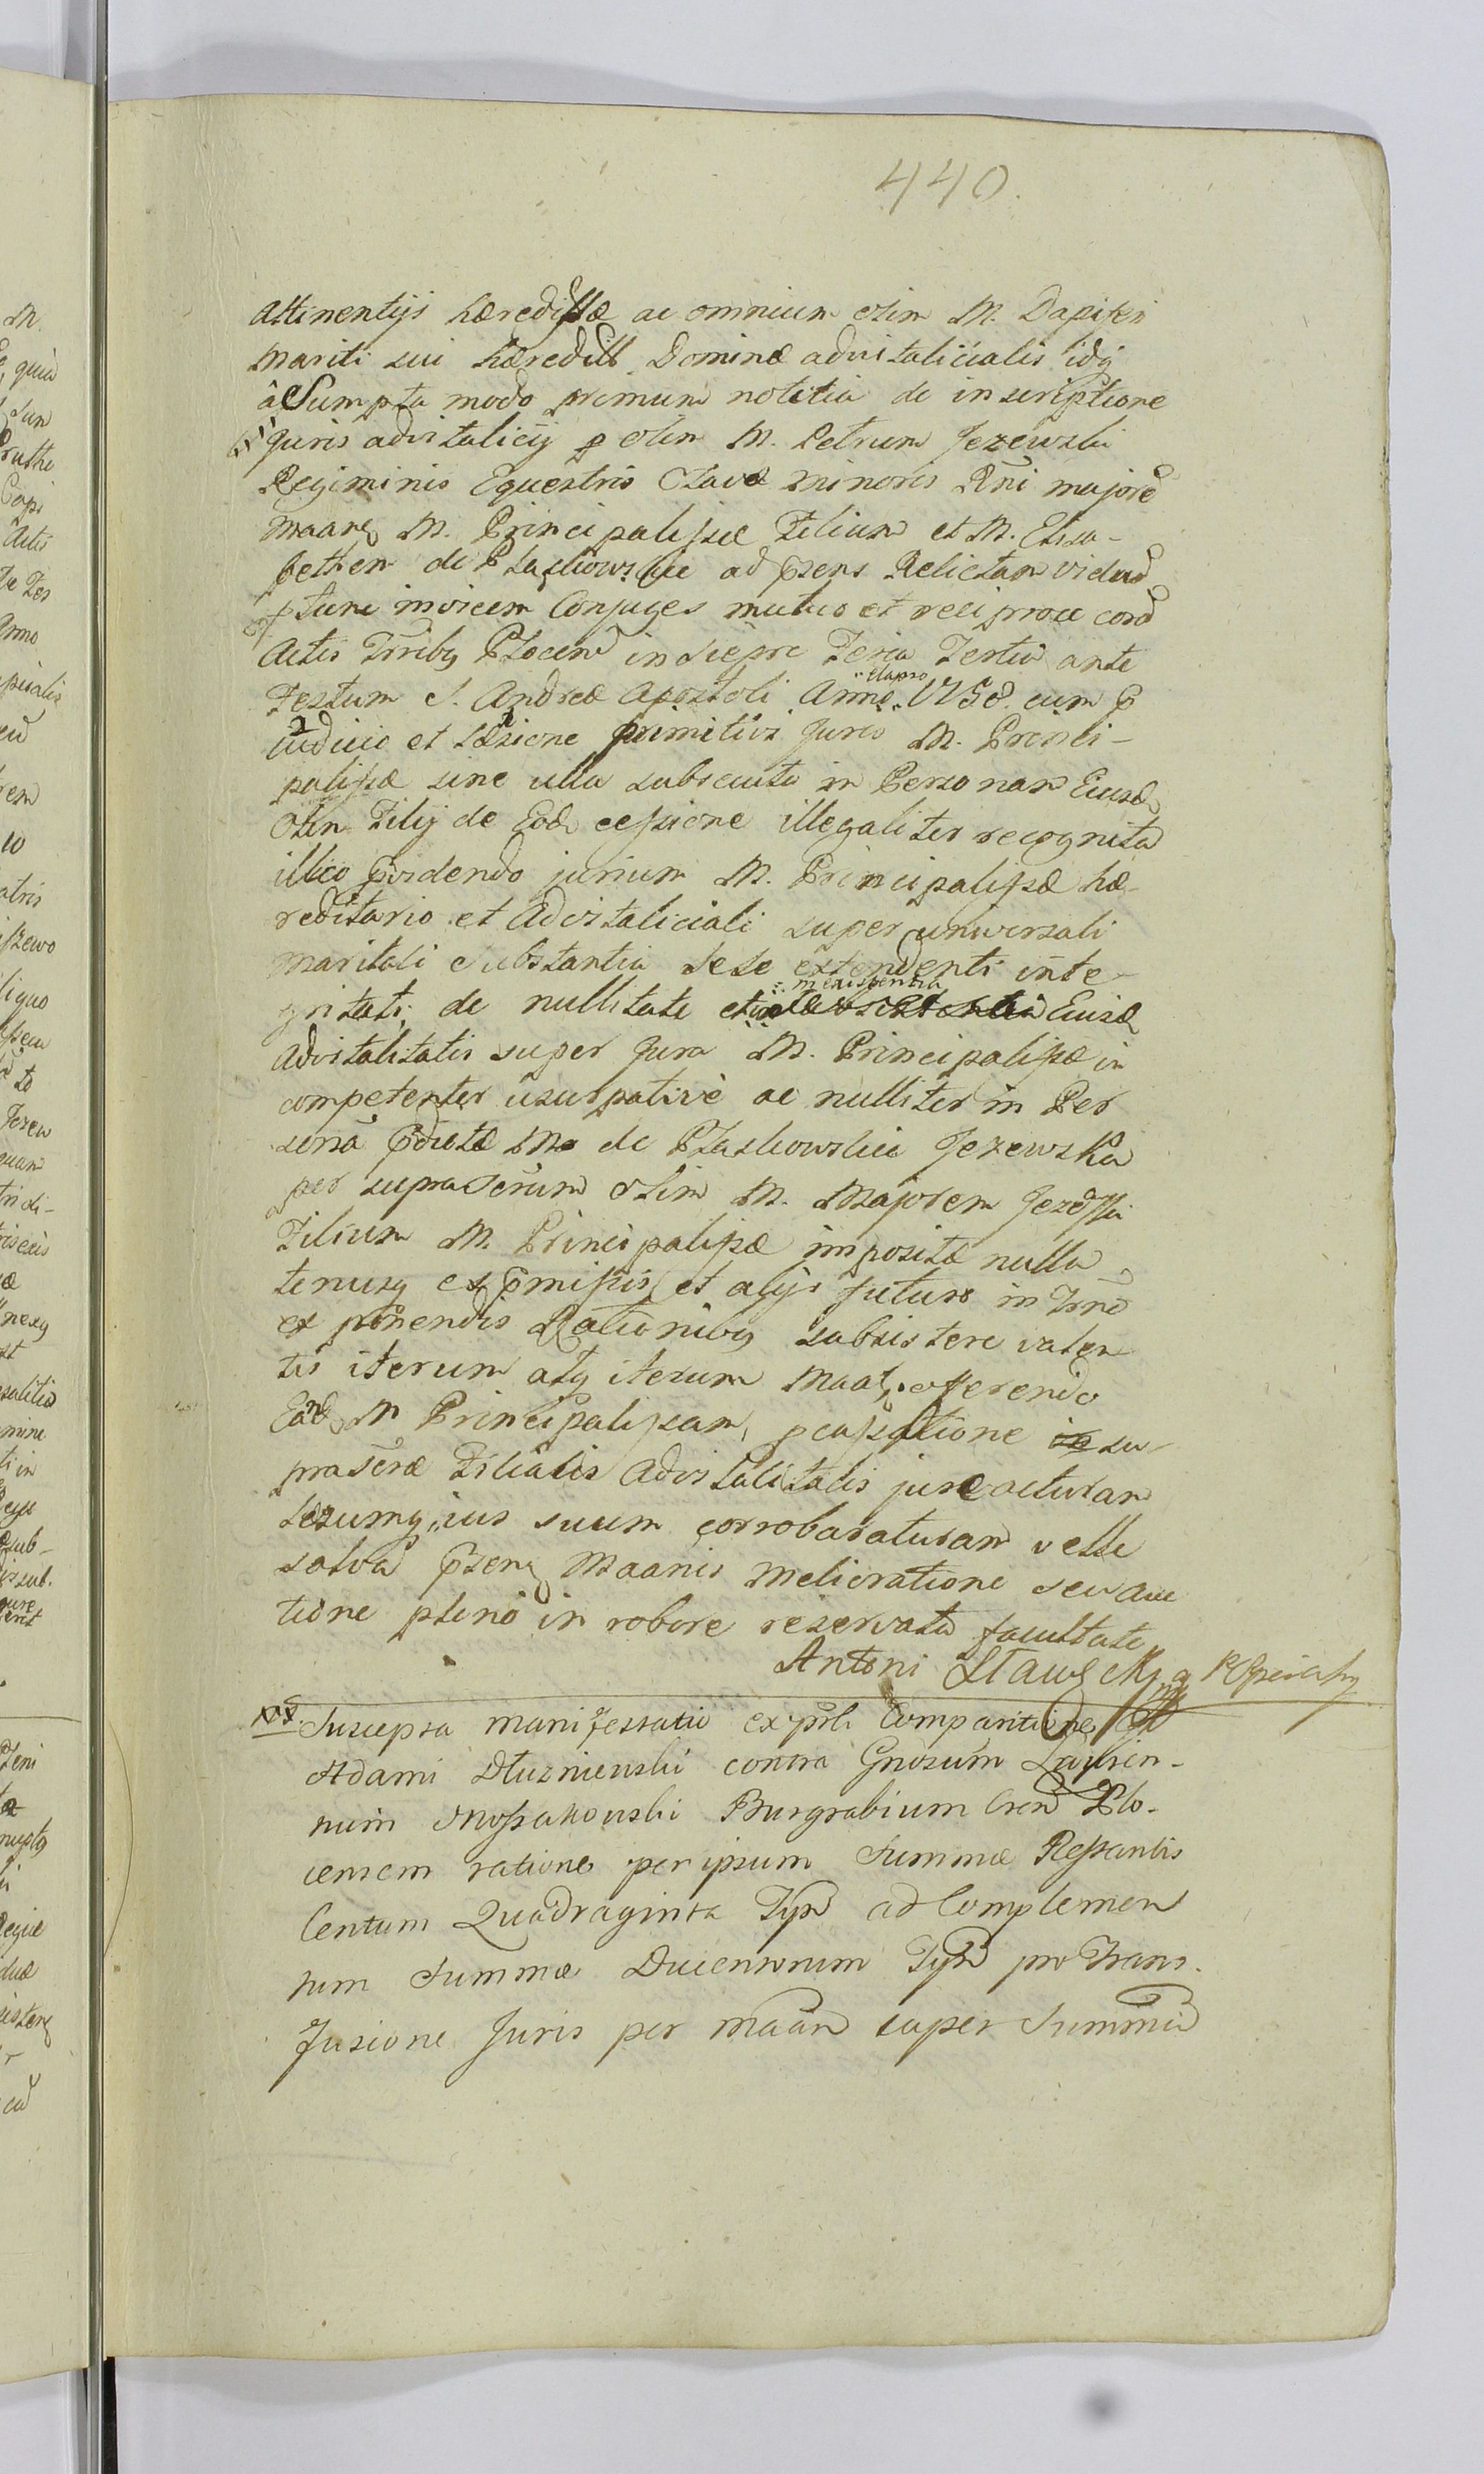 440.
attinentijs hæredissæ ac omnium olim M. Dapiferi
mariti sui hæredill Dominæ advitalicialis idq
a Sumpta modo primum notitia de inscriptione
Juris advitalicij p olim M. Petrum Jezewski
Regiminis Equestris Clavæ minoris Rni majorē
maane M. Principalissæ Filium et M. Elisa-
bethem de Płaskowskie ad psens Relictam viduā
tunc invicem Conjuges mutuo et reciproce corā
Actis Trribq Płocen in Sieprc Feria Tertia ante
Festum S. Andreæ Apostoli Anno elapso 1758. cum p
iudicio et læsione primitivi Juris M. Princi-
palissæ sine ulla subsecuta in Personam Eiusd
olim Filij de Eod cessione illegaliter recognita
illico pvidendo jurium M. Principalissæ hæ-
reditario et Advitaliciali super universali
maritali Substantia Sese extendenti inte-
gritati, de nullitate et inexistentia Eiusd
Advitalitatis super Jura M. Principalissæ in
competenter usurpative ac nulliter in Per
sona pdictæ M. de Płaskowskie Jezewska
per supra Scrum olim M. Majorem Jezewski
Filium M. Principalissæ impositæ nulla
tenusq ex pmissis et alijs futuro in Trno
ex ponendis Rationibq subsistere valen
tis iterum atq iterum Maat, offerendo
Eand M Principalissam, p cassatione su-
pra Scræ Filialis Advitalitatis jure acturam
læsumq ius suum corroboraturam velle
salva psentis Maanis melioratione seu auc
tione pleno in robore reservata facultate
Antoni Stawecki
NB Suscepta manifestatio ex psli Comparitione
Adami Dłuzniewski contra Gnosum Lauren-
tium Mossakowski Burgrabium Cren Plo-
censem ratione per ipsum Summæ Restantis
Centum Quadraginta Typh ad Complemen
tum Summæ Ducentorum Typh pro Trans-
fusione Juris per maan super Summa